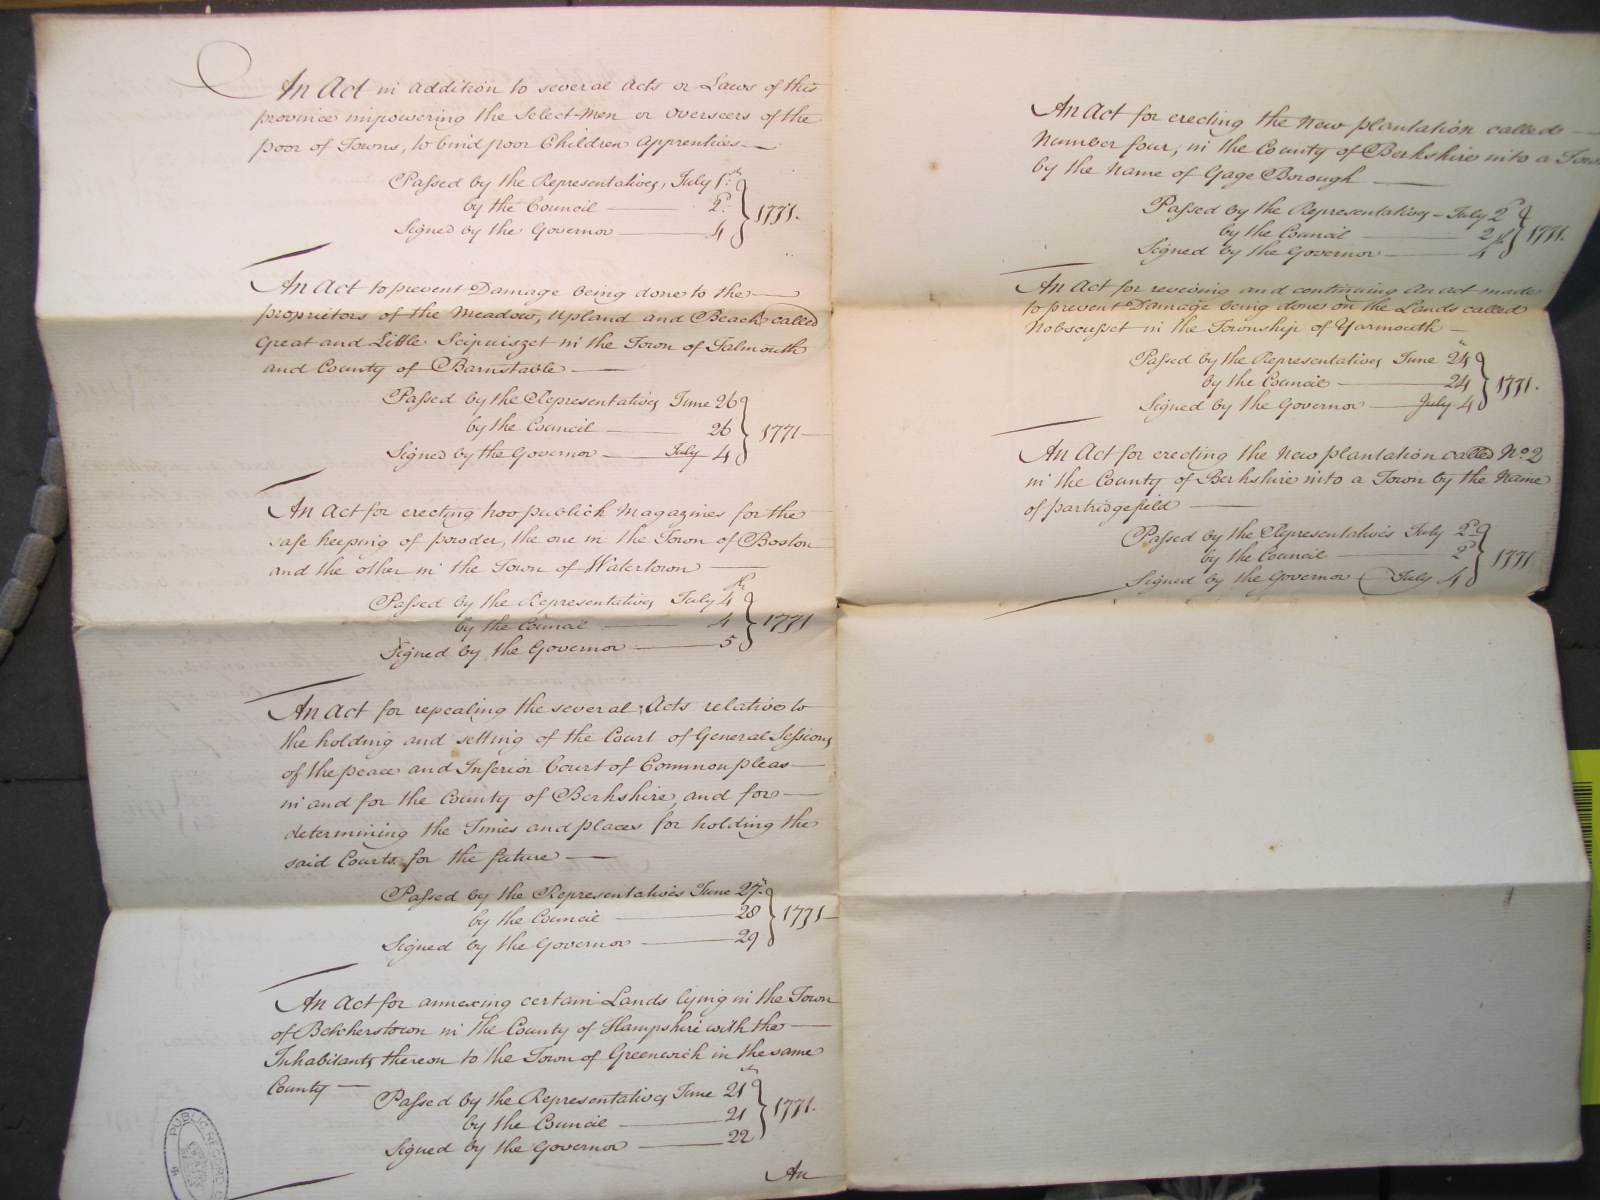 An Act in addition to several Acts or Laws of this
province impowering the Select-Men or Overseers of the
poor of Towns, to bind poor Children Apprentices
Passed by the Representatives, July 1st
by the Council 2d
Signed by the Governor 4
1771.
An Act to prevent Damage being done to the
proprietors of the Meadow, Upland and Beach called
Great and Little Scipuisset in the Town of Falmouth
and County of Barnstable
Passed by the Representatives June 26
by the Council 26
Signed by the Governor July 4
1771
An Act for erecting two publick Magazines for the
safe keeping of powder, the one in the Town of Boston
and the other in the Town of Watertown
Passed by the Representatives July 4th
by the Council 4
Signed by the Governor 5
1771
An Act for repealing the several Acts relative to
the holding and setting of the Court of General Sessions
of the peace and Inferior Court of Common pleas
in and for the County of Berkshire, and for
determining the Times and places for holding the
said Courts for the future
Passed by the Representatives June 27
by the Council 28
Signed by the Governor 29
1771
An Act for annexing certain Lands lying in the Town
of Belcherstown in the County of Hampshire with the
Inhabitants thereon to the Town of Greenwich in the same
County
Passed by the Representatives June 21st
by the Council 21
Signed by the Governor 22
1771.
An
PUBLIC RECORD
An Act for erecting the New plantation called
Number four, in the County of Berkshire into a Town
by the Name of Gage Borough
Passed by the Representatives July 2d
by the Council 2
Signed by the Governor 4th
1771.
An Act for reviving and continuing an act made
to prevent Damage being done on the Lands called
Nobscusset in the Township of Yarmouth
Passed by the Representatives June 24
by the Council 24
Signed by the Governor July 4
1771.
An Act for erecting the New plantation called No. 2
in the County of Berkshire into a Town by the Name
of partridgefield
Passed by the Representatives July 2d
by the Council 2d
Signed by the Governor July 4
1771